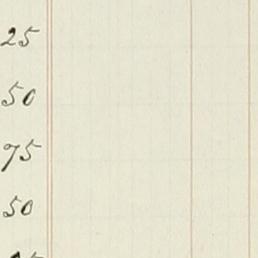 25
50
75
50